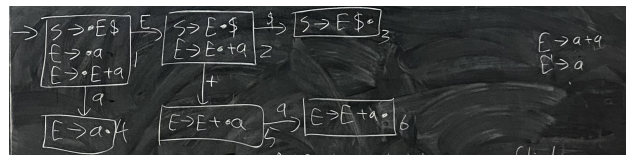 S→•E$
E→•a
E→•E+a
1
E
S→E•$
E→E•+a
2
$
S→E$•
3
a
E→a•
4
+
E→E+•a
5
a
E→E+a•
6
E→a+a
E→a